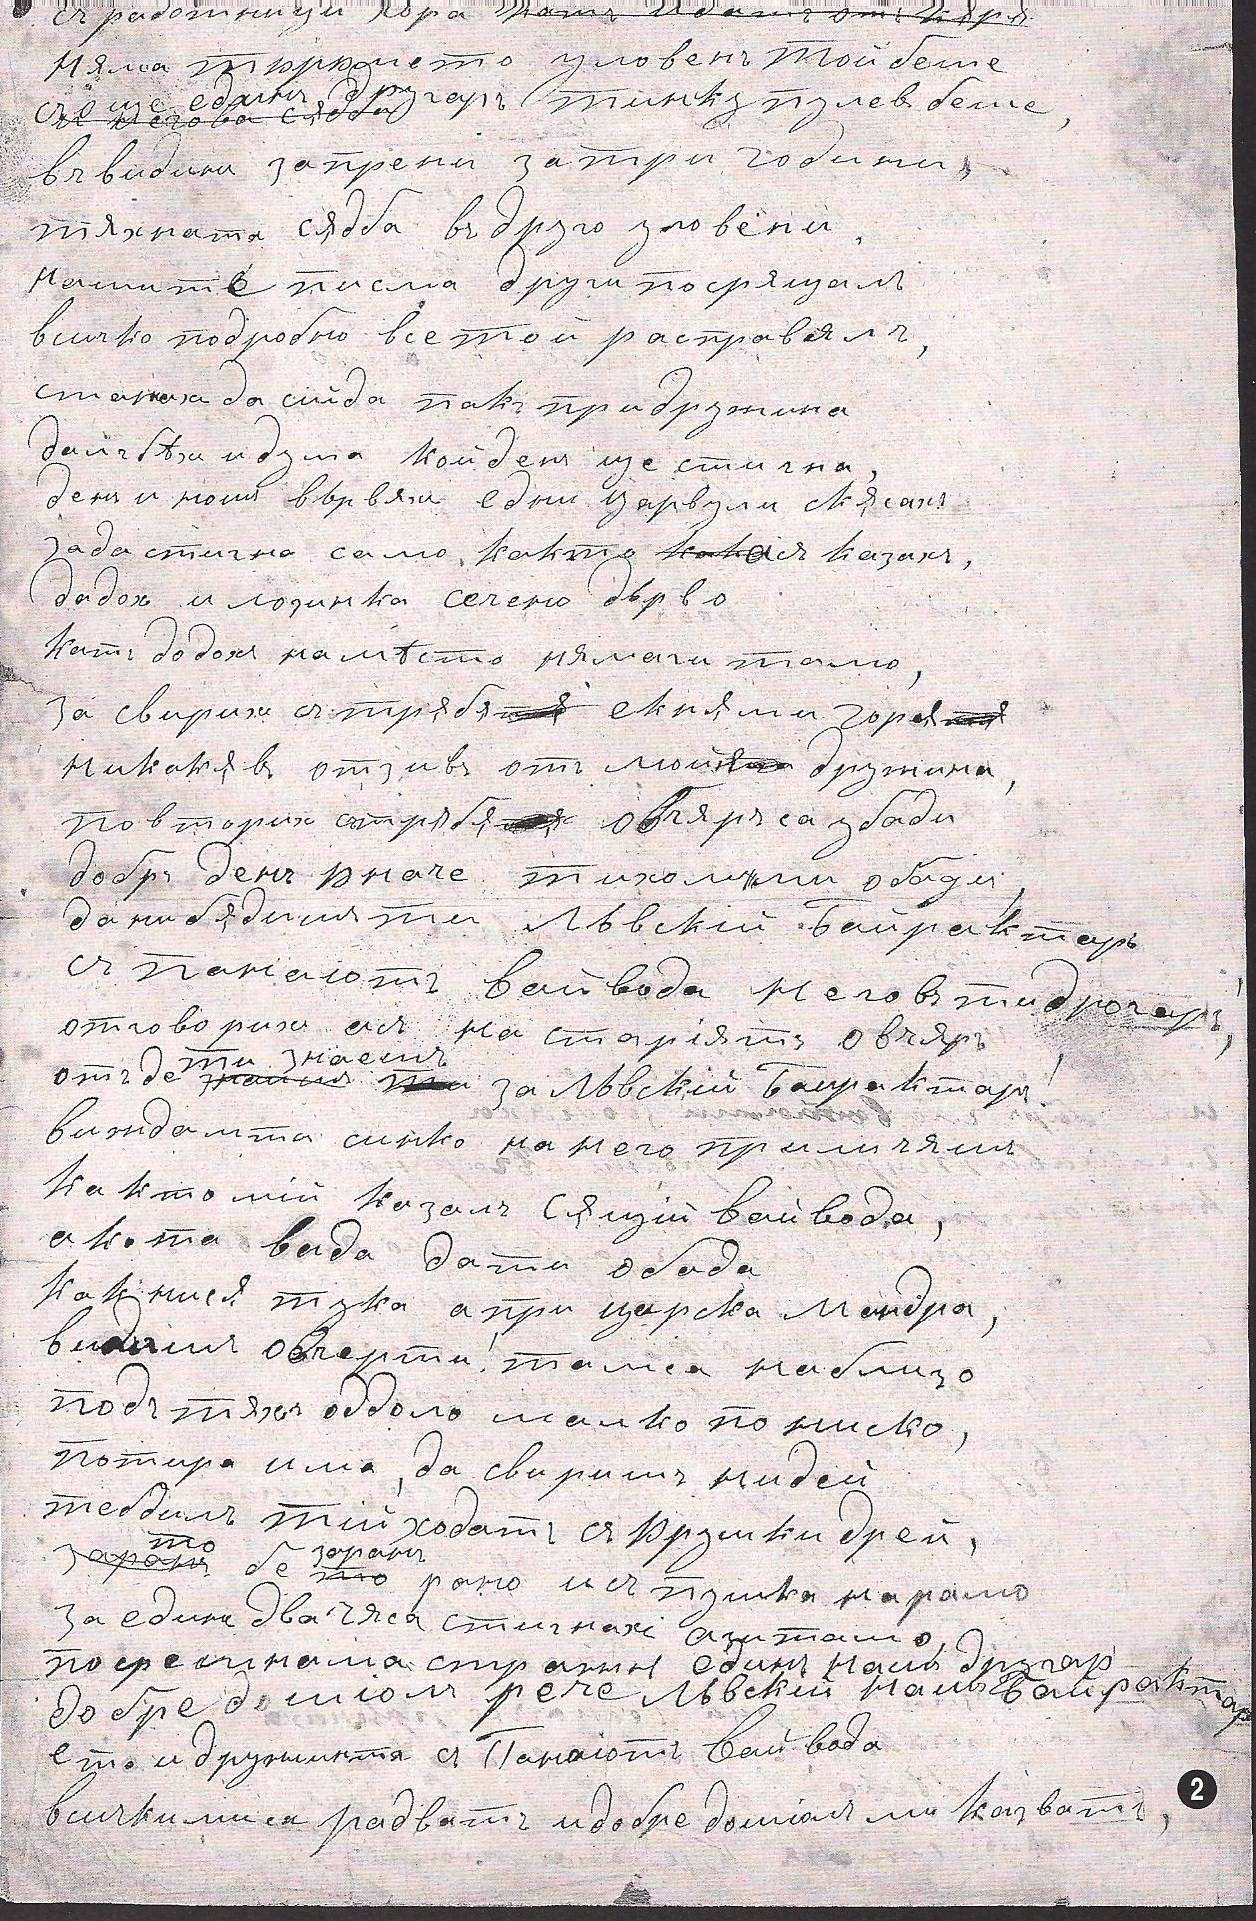 съ работници хора катъ идатъ отъ къря
няма тефтчето уловенъ той беше
съ неговa сядба още единъ другаръ тинку пулевъ беше,
въ видинъ запрени за три години,
тяхната сядба въ друго уловени,
нашите писма други посрящалъ
всичко подробно все той расправялъ,
станаха да сийда пакъ при дружина
далъ бѣхи и дума кой день ще стигна,
день и нощя вървяхи едни цървули скясахъ
за да стигна само, както кака ся казахъ,
дадох и лозинка сечено дърво
катъ додохя на мѣсто нямаги тамо,
за свирих съ тръбя екняли горя
никакъвъ отзивъ отъ моия дружина,
повторих стръбя овчяря са убади
добръ день рначе тихомъ ми обади,
да ни бядишъ ти Лъвскiй Байрактарь
съ панаютъ вайвода неговъ ти другарь,
отговорих ая на старiятъ овчяръ
отъ де ти знаешъ за Лъвскiй Баирактарь!
виждамта синко на него приличяшъ
както мiй казалъ сящiй вайвода,
ако та вида дати обада
как ниея тука а при царска мандра,
видишъ овчерти! тамса наблизо
подъ тяхъ оддоло малко по ниско,
потира има, да свиришъ нидей
тебдилъ тiй ходатъ съ крушки дрей,
то бе зарань рано исъ пушка на рамо
за единъ два чяса стигнахi азитамо,
посрешнама страннъ единъ нашъ другар
добре дошiолъ рече Лъвскiй нашъ Байрактар
ето и дружинта съ Панаютъ Вайвода
всички ми са радватъ и добре дошiолъ ми казватъ,
2